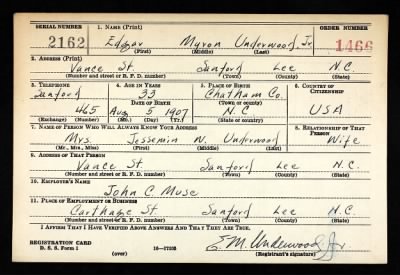 SERIAL NUMBER 1. NAME (Print) ORDER NUMBER
2162 Edgar Myron Underwood, Jr. 1466
(First) (Middle) (Last)
2. ADDRESS (Print)
Vance St Sanford Lee N.C.
(Number and street or R. F. D. number) (Town) (County) (State)
3. TELEPHONE 4. AGE IN YEARS 5. PLACE OF BIRTH 6. COUNTRY OF CITIZENSHIP
Sanford 33 Chatham Co.
DATE OF BIRTH (Town or county)
465 Aug 5 1907 N.C USA
(Exchange) (Number) (Mo.) (Day) (Yr.) (State or country)
7. NAME OF PERSON WHO WILL ALWAYS KNOW YOUR ADDRESS 8. RELATIONSHIP OF THAT PERSON
Mrs. Jessemin N. Underwood Wife
(Mr., Mrs., Miss) (First) (Middle) (Last)
9. ADDRESS OF THAT PERSON
Vance St Sanford Lee N.C.
(Number and street or R. F. D. number) (Town) (County) (State)
10. EMPLOYER'S NAME
John C Muse
11. PLACE OF EMPLOYMENT OR BUSINESS
Carthage St Sanford Lee N.C.
(Number and street or R. F. D. number) (Town) (County) (State)
I AFFIRM THAT I HAVE VERIFIED ABOVE ANSWERS AND THAT THEY ARE TRUE.
REGISTRATION CARD
D. S. S. Form 1 (over) 16-17105 E.M. Underwood Jr
(Registrant's signature)